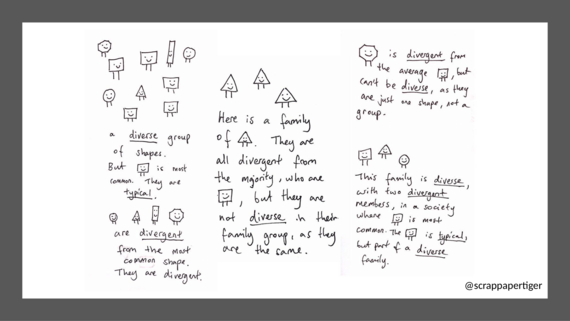 a diverse group
of shapes.
But is most
common. They are
typical.
are divergent
from the most
common shape.
They are divergent.
Here is a family
of . They are
all divergent from
the majority, who are
, but they are
not diverse in their
family group, as they
are the same.
is divergent from
the average , but
can't be diverse, as they
are just one shape, not a
group.
This family is diverse,
with two divergent
members, in a society
where is most
common. The is typical,
but part of a diverse
family.
@scrappapertiger